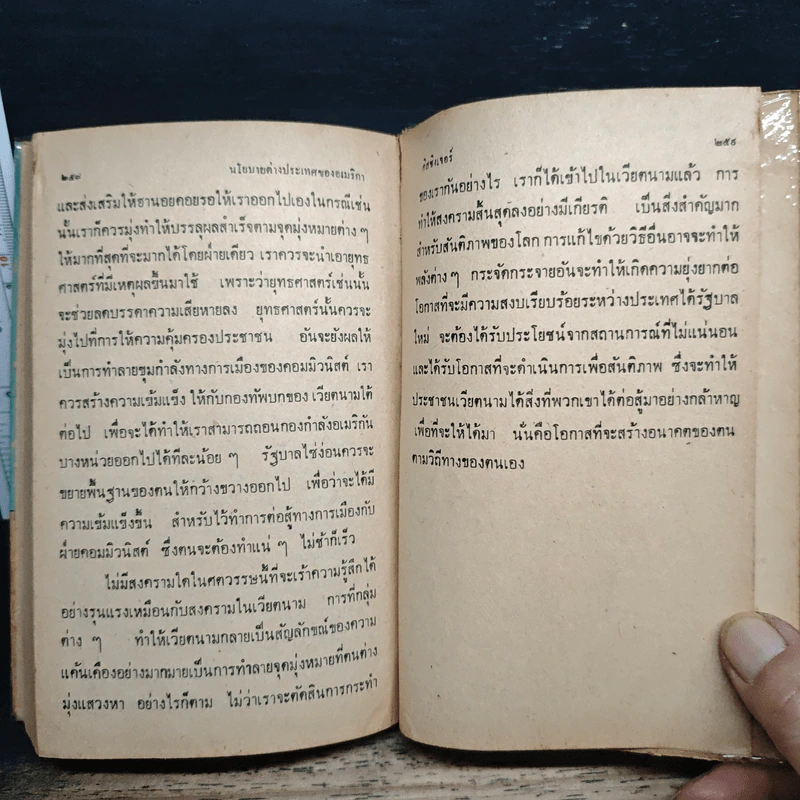 ๒๕๘ นโยบายต่างประเทศของอเมริกา
และส่งเสริมให้ฮานอยคอยรอให้เราออกไปเองในกรณีเช่น
นั้นเราก็ควรมุ่งทำให้บรรลุผลสำเร็จตามจุดมุ่งหมายต่าง ๆ
ให้มากที่สุดที่จะมากได้โดยฝ่ายเดียว เราควรจะนำเอายุทธ
ศาสตร์ที่มีเหตุผลขึ้นมาใช้ เพราะว่ายุทธศาสตร์เช่นนั้น
จะช่วยลดบรรดาความเสียหายลง ยุทธศาสตร์นั้นควรจะ
มุ่งไปที่การให้ความคุ้มครองประชาชน อันจะยังผลให้
เป็นการทำลายขุมกำลังทางการเมืองของคอมมิวนิสต์ เรา
ควรสร้างความเข้มแข็ง ให้กับกองทัพบกของ เวียตนามใต้
ต่อไป เพื่อจะได้ทำให้เราสามารถถอนกองกำลังอเมริกัน
บางหน่วยออกไปได้ทีละน้อย ๆ รัฐบาลไซ่ง่อนควรจะ
ขยายพื้นฐานของตนให้กว้างขวางออกไป เพื่อว่าจะได้มี
ความเข้มแข็งขึ้น สำหรับไว้ทำการต่อสู้ทางการเมืองกับ
ฝ่ายคอมมิวนิสต์ ซึ่งตนจะต้องทำแน่ ๆ ไม่ช้าก็เร็ว
ไม่มีสงครามใดในศตวรรษนี้ที่จะเร้าความรู้สึกได้
อย่างรุนแรงเหมือนกับสงครามในเวียตนาม การที่กลุ่ม
ต่าง ๆ ทำให้เวียตนามกลายเป็นสัญลักขณ์ของความ
แค้นเคืองอย่างมากมายเป็นการทำลายจุดมุ่งหมายที่ตนต่าง
มุ่งแสวงหา อย่างไรก็ตาม ไม่ว่าเราจะตัดสินการกระทำ
คิสซิงเจอร์ ๒๕๙
ของเรากันอย่างไร เราก็ได้เข้าไปในเวียตนามแล้ว การ
ทำให้สงครามสิ้นสุดลงอย่างมีเกียรติ เป็นสิ่งสำคัญมาก
สำหรับสันติภาพของโลก การแก้ไขด้วยวิธีอื่นอาจจะทำให้
พลังต่าง ๆ กระจัดกระจายอันจะทำให้เกิดความยุ่งยากต่อ
โอกาสที่จะมีความสงบเรียบร้อยระหว่างประเทศได้รัฐบาล
ใหม่ จะต้องได้รับประโยชน์จากสถานการณ์ที่ไม่แน่นอน
และได้รับโอกาสที่จะดำเนินการเพื่อสันติภาพ ซึ่งจะทำให้
ประชาชนเวียตนามได้สิ่งที่พวกเขาได้ต่อสู้มาอย่างกล้าหาญ
เพื่อที่จะให้ได้มา นั่นคือโอกาสที่จะสร้างอนาคตของตน
ตามวิถีทางของตนเอง